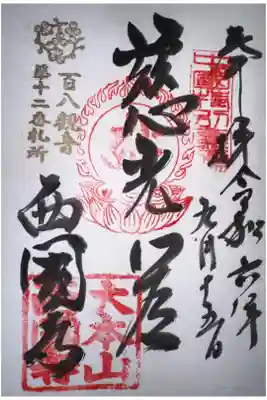 奉拝 令和六年
九月十五日
慈光
百八観音
第十二番札所
西國寺
大本山
西國寺